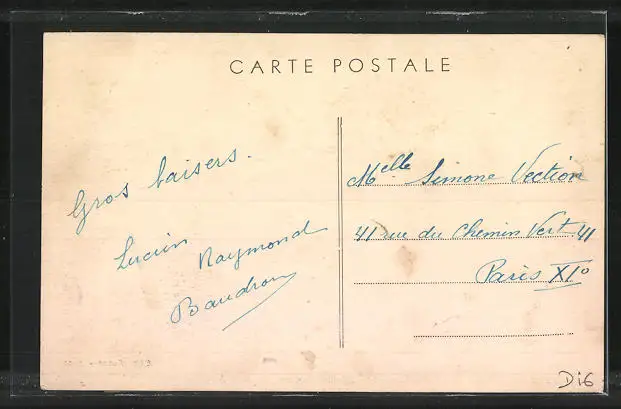 CARTE POSTALE
Gros baisers.
Lucien Raymond
Baudron
Melle Simone Vection
41 rue du Chemin Vert. 41
Paris XIº
Di6